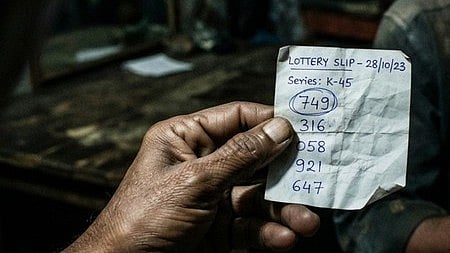 LOTTERY SLIP - 28/10/23
Series: K-45
749
316
058
921
647